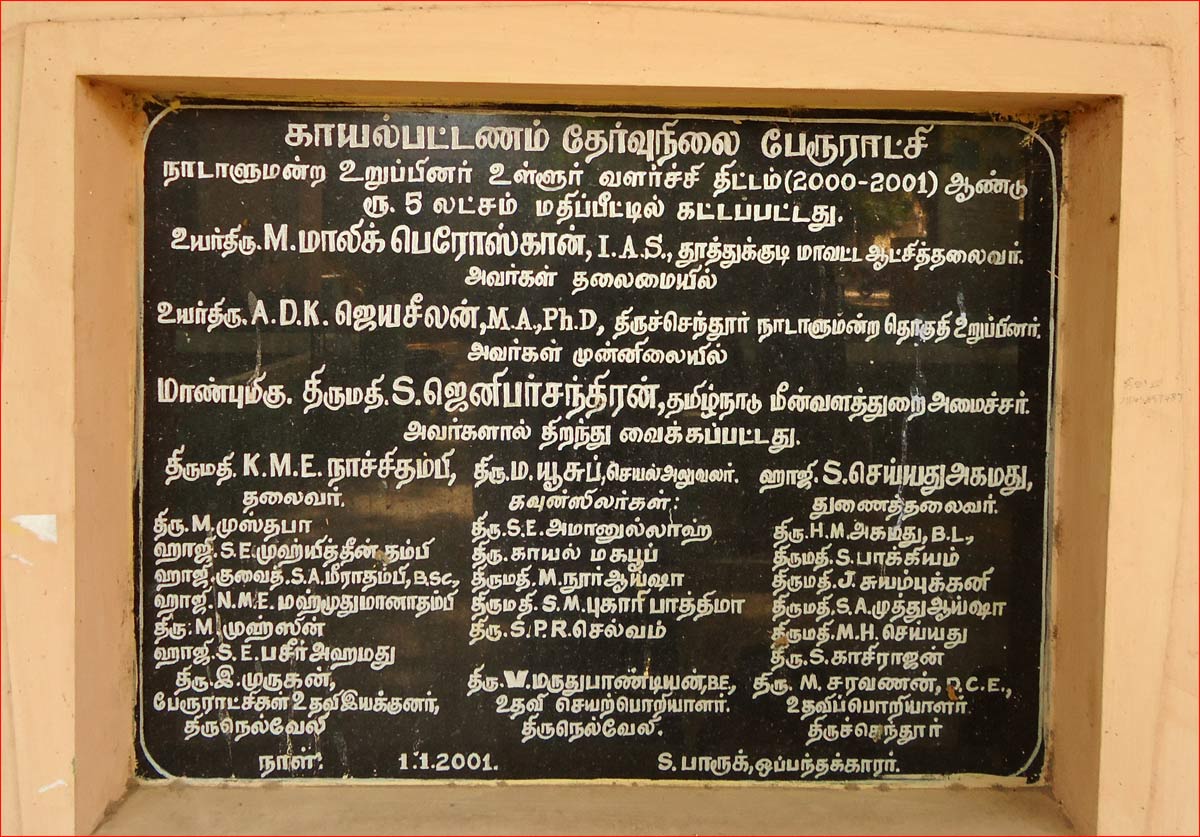 காயல்பட்டணம் தேர்வுநிலை பேரூராட்சி
நாடாளுமன்ற உறுப்பினர் உள்ளூர் வளர்ச்சி திட்டம்(2000-2001) ஆண்டு
ரூ. 5 லட்சம் மதிப்பீட்டில் கட்டப்பட்டது.
உயர்திரு. M. மாலிக் பெரோஸ்கான், I.A.S., தூத்துக்குடி மாவட்ட ஆட்சித்தலைவர்.
அவர்கள் தலைமையில்
உயர்திரு. A.D.K. ஜெயசீலன், M.A., Ph.D, திருச்செந்தூர் நாடாளுமன்ற தொகுதி உறுப்பினர்.
அவர்கள் முன்னிலையில்
மாண்புமிகு. திருமதி. S. ஜெனிபர்சந்திரன், தமிழ்நாடு மீன்வளத்துறை அமைச்சர்.
அவர்களால் திறந்து வைக்கப்பட்டது.
திருமதி. K.M.E. நாச்சிதம்பி, திரு. ம. யூசுப், செயல் அலுவலர். ஹாஜி. S. செய்யது அகமது,
தலைவர். கவுன்ஸிலர்கள்: துணைத்தலைவர்.
திரு. M. முஸ்தபா திரு. S.E. அமானுல்லாஹ் திரு. H.M. அகமது, B.L.,
ஹாஜி. S.E. முஹ்யித்தீன் தம்பி திரு. காயல் மகபூப் திருமதி. S. பாக்கியம்
ஹாஜி. குவைத். S.A. மீராதம்பி, B.Sc., திருமதி. M. நூர்ஆய்ஷா திருமதி. J. சுயம்புக்கனி
ஹாஜி. N.M.E. மஹ்முதுமானாதம்பி திருமதி. S.M. புகாரி பாத்திமா திருமதி. S.A. முத்துஆய்ஷா
திரு. M. முஹ்ஸின் திரு. S.P.R. செல்வம் திருமதி. M.H. செய்யது
ஹாஜி. S.E. பசீர் அஹமது திரு. S. காசிராஜன்
திரு. இ. முருகன், திரு. W. மருதுபாண்டியன், B.E., திரு. M. சரவணன், D.C.E.,
பேரூராட்சிகள் உதவி இயக்குனர், உதவி செயற்பொறியாளர். உதவிப்பொறியாளர்
திருநெல்வேலி திருநெல்வேலி. திருச்செந்தூர்
நாள்: 1.1.2001. S. பாரூக், ஒப்பந்தக்காரர்.